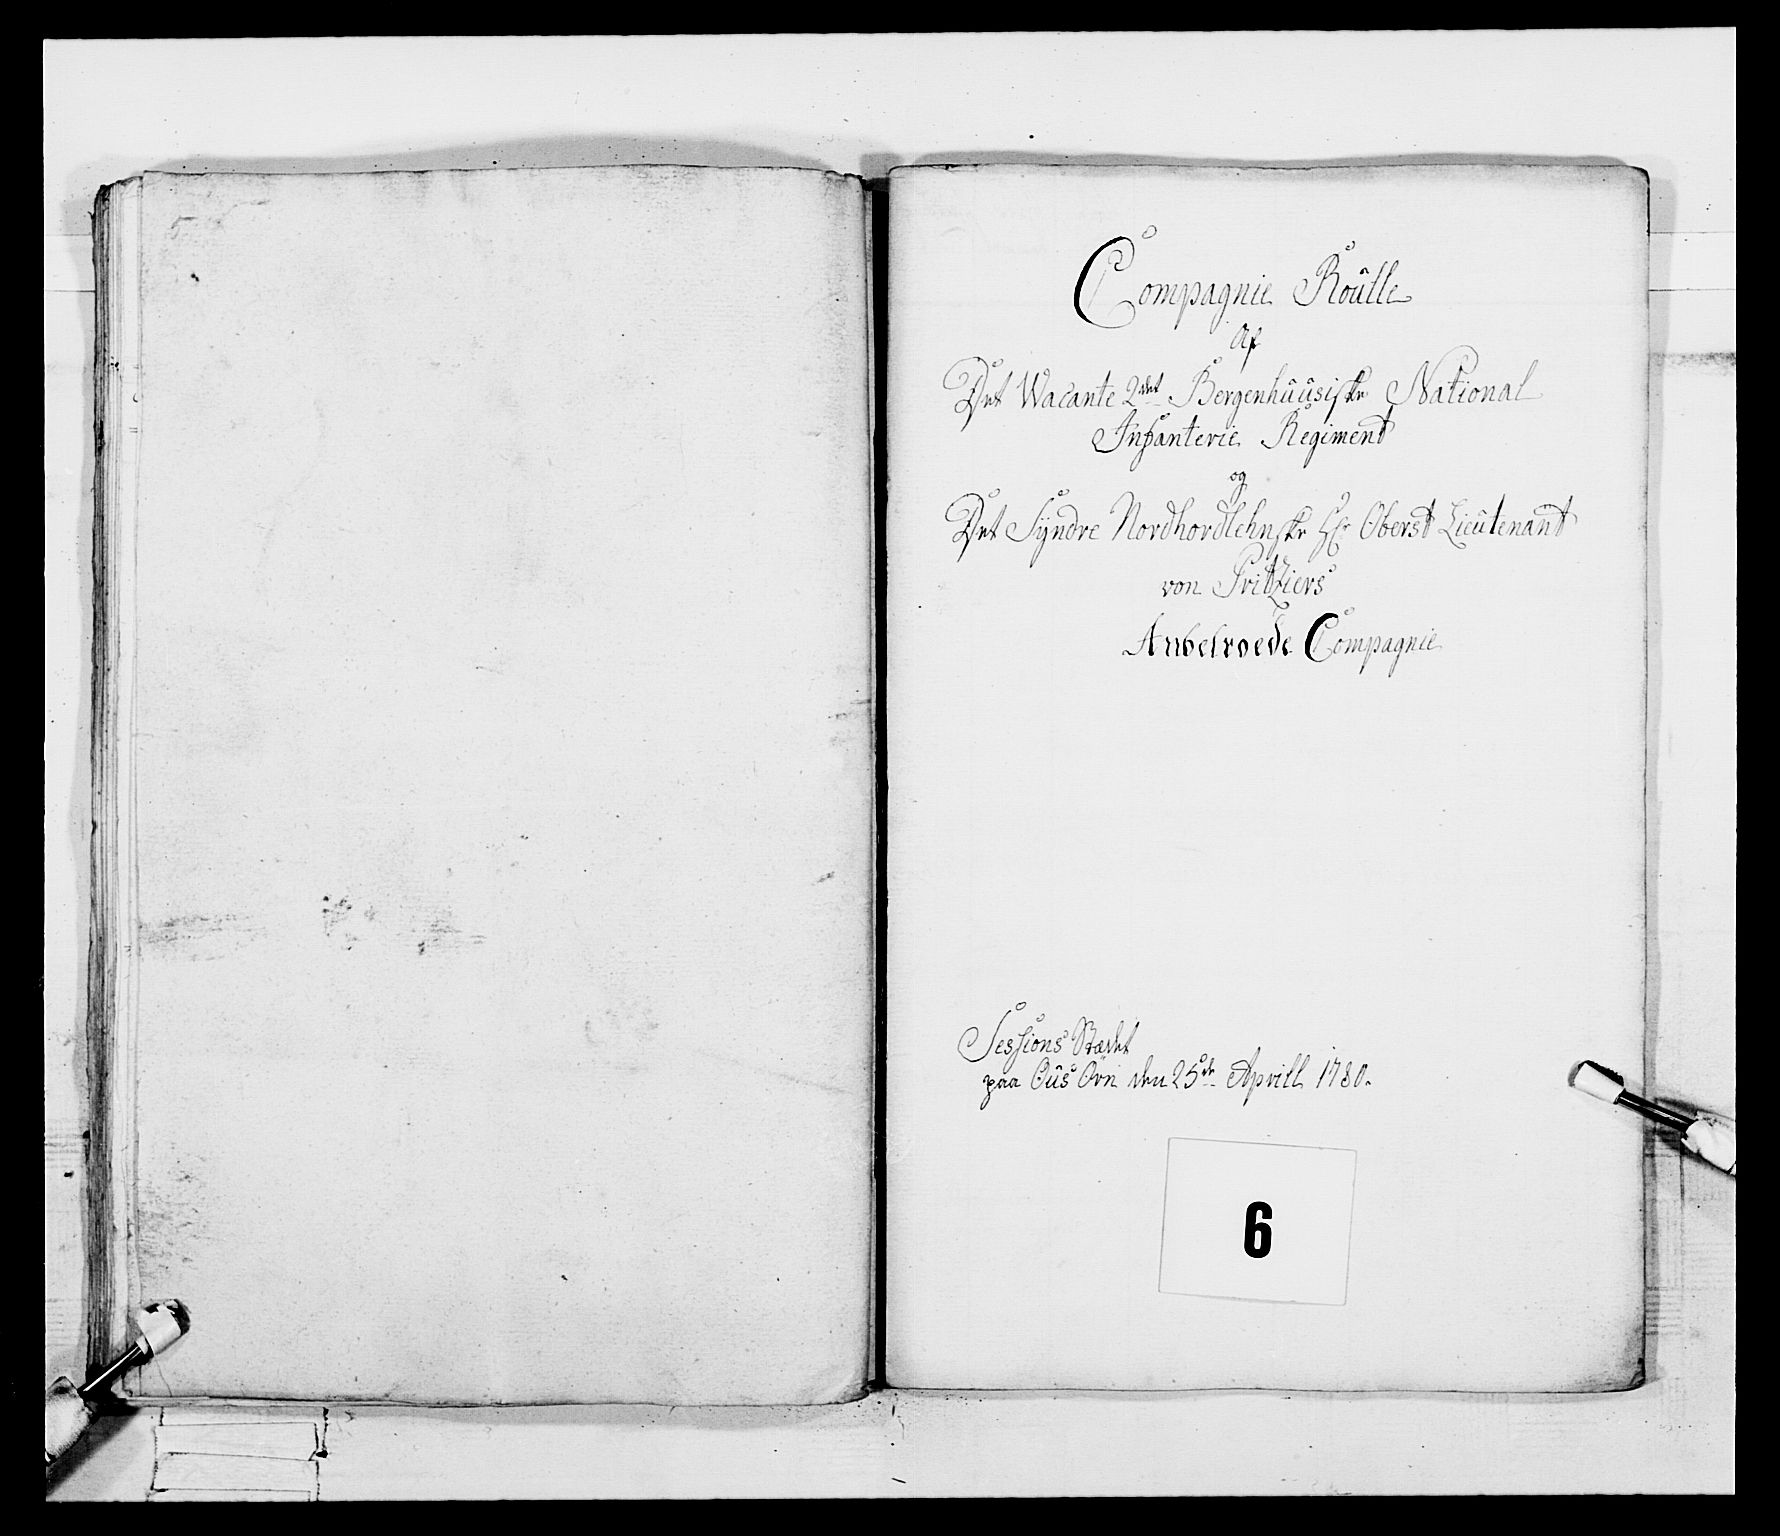 Compagnie Roulle
Af
Det Wacante 2det Bergenhuusiske National
Infanterie Regiment
og
Det Syndre Nordhordlehnske Hr Oberst Lieutenant
von Fritziers
Anbefroede Compagnie
Sessions Stædet
paa Ous Örn den 25de Aprill 1780.
6